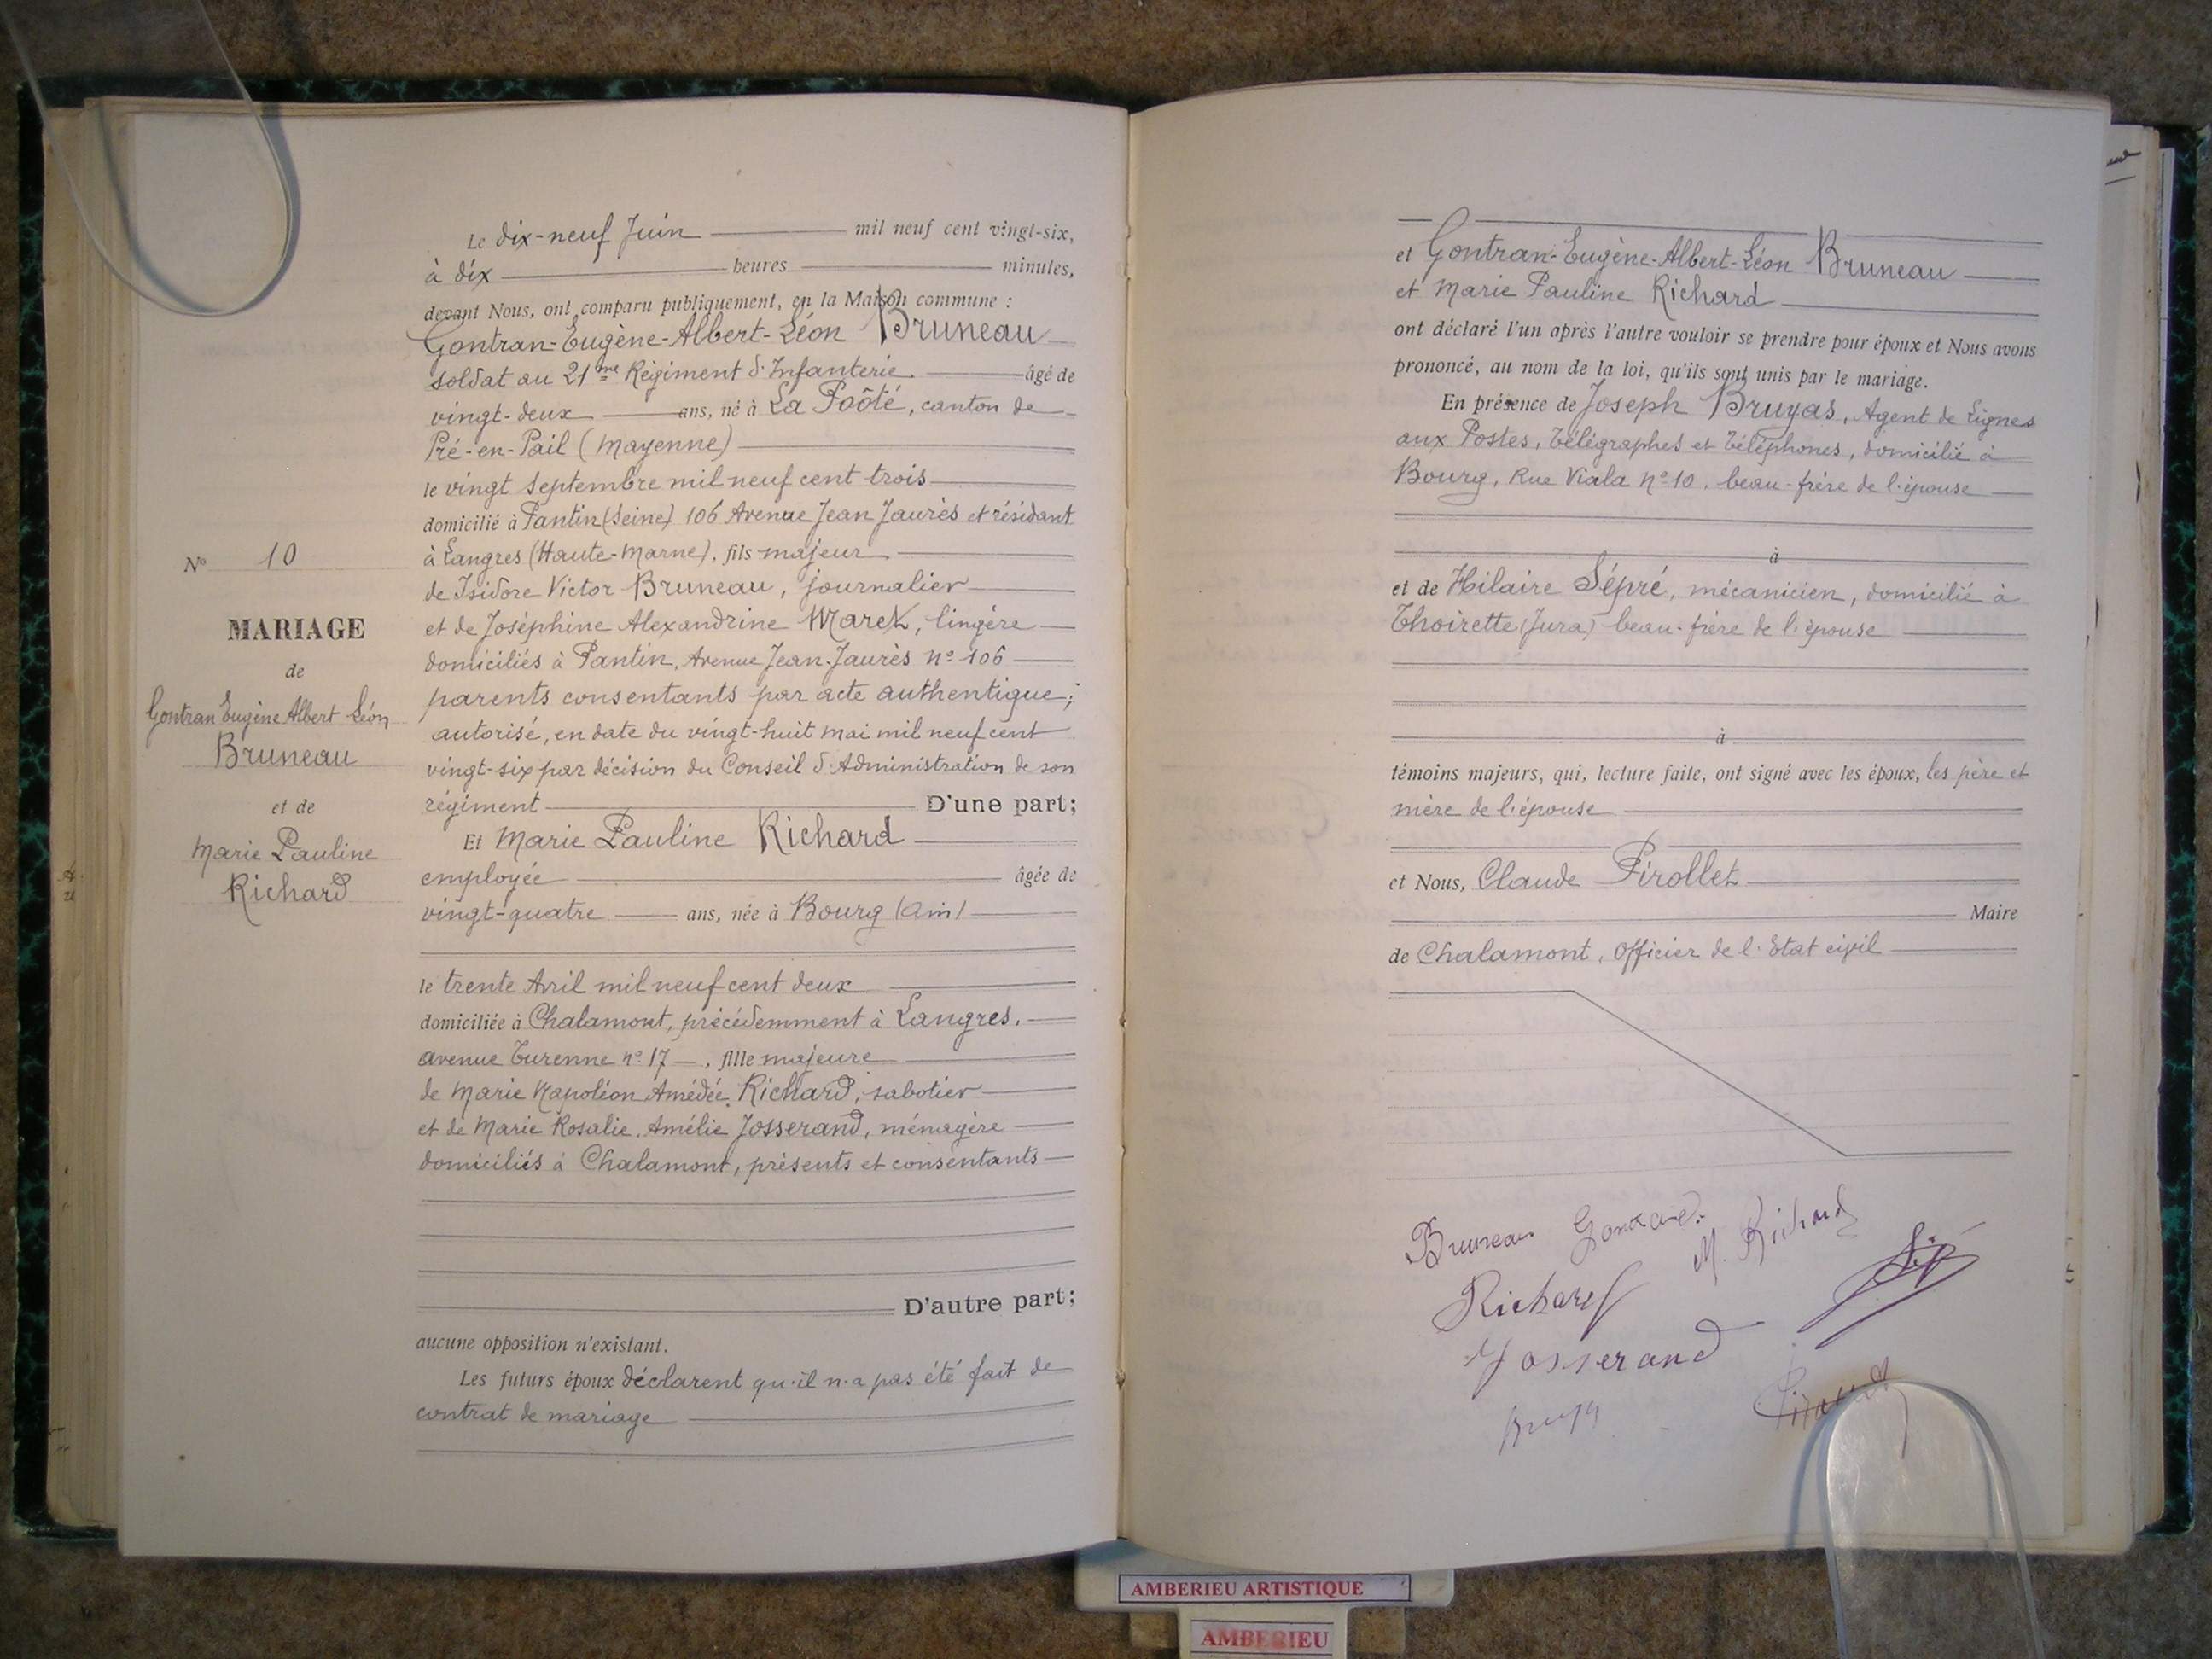 Le dix-neuf Juin mil neuf cent vingt-six,
à dix heures minutes,
devant Nous, ont comparu publiquement, en la Maison commune :
Gontran-Eugène-Albert-Léon Bruneau
soldat au 21me Régiment d'Infanterie âgé de
vingt-deux ans, né à La Poôté, canton de
Pré-en-Pail (Mayenne)
le vingt Septembre mil neuf cent trois
domicilié à Pantin (Seine) 106 Avenue Jean Jaurès et résidant
à Langres (Haute-Marne), fils majeur
de Isidore Victor Bruneau, journalier
et de Joséphine Alexandrine Marek, lingère
domiciliés à Pantin, Avenue Jean-Jaurès nº 106
parents consentants par acte authentique;
autorisé, en date du vingt-huit mai mil neuf cent
vingt-six par décision du Conseil d'Administration de son
régiment D'une part;
Et Marie Pauline Richard
employée âgée de
vingt-quatre ans, née à Bourg (Ain)
le trente Avril mil neuf cent deux
domiciliée à Chalamont, précédemment à Langres,
avenue Turenne nº 17, fille majeure
de Marie Napoléon Amédée Richard, sabotier
et de Marie Rosalie Amélie Josserand, ménagère
domiciliés à Chalamont, présents et consentants
D'autre part;
aucune opposition n'existant.
Les futurs époux déclarent qu'il n'a pas été fait de
contrat de mariage
Nº 10
MARIAGE
de
Gontran Eugène Albert Léon
Bruneau
et de
Marie Pauline
Richard
et Gontran-Eugène-Albert-Léon Bruneau
et Marie Pauline Richard
ont déclaré l'un après l'autre vouloir se prendre pour époux et Nous avons
prononcé, au nom de la loi, qu'ils sont unis par le mariage.
En présence de Joseph Bruyas, Agent de Lignes
aux Postes, Télégraphes et Téléphones, domicilié à
Bourg, Rue Viala nº 10, beau-frère de l'épouse
à
et de Hilaire Sépré, mécanicien, domicilié à
Thoirette (Jura) beau-frère de l'épouse
à
témoins majeurs, qui, lecture faite, ont signé avec les époux, les père et
mère de l'épouse
et Nous, Claude Pirollet
Maire
de Chalamont, Officier de l'Etat civil
Bruneau Gontran
M. Richard
Richard
Josserand
AMBERIEU ARTISTIQUE
AMBERIEU